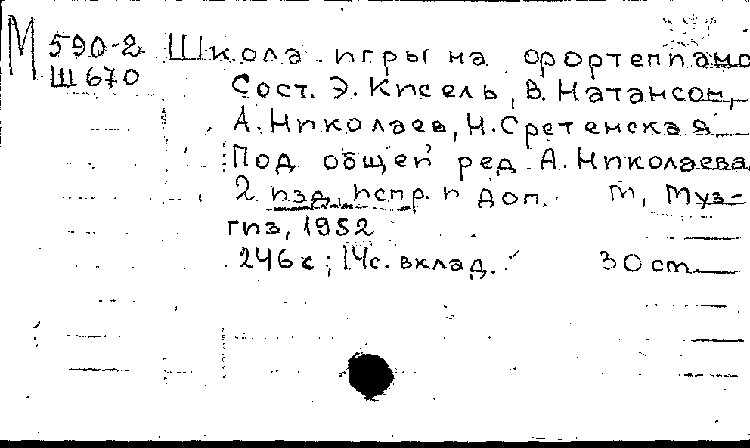 М 590-2 Школа игры на фортепиано
Ш670 Сост. Э. Кисель, В. Натансон,
А. Николаев, Н. Сретенская
Под общей ред. А. Николаева
2 изд. испр. и доп. М, Муз-
гиз, 1952
246 с; 14с. вклад. 30 cm